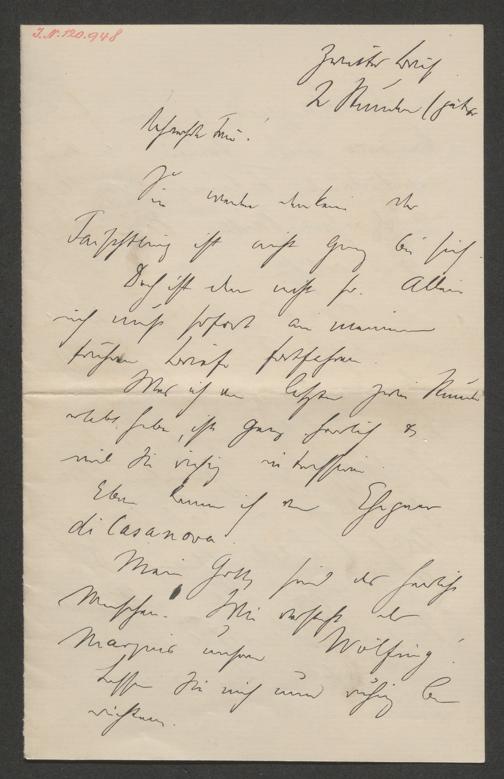 I.N. 120.948
Zweiter Brief
2 Stunden später
Verehrte Frau!
Sie werden denken der
Faistling ist nicht ganz bei sich.
Doch ist dem nicht so. Allein
ich muß sofort an meinem
frühern Briefe fortfahren.
Was ich in letzten zwei Stunden
erlebt habe, ist ganz herrlich &
wird Sie riesig interessieren.
Eben kenne ich den Ehegner
di Casanova.
Mein Gott, sind das herrliche
Menschen. Wie versteht der
Marquis unsern Wölfing!
Lassen Sie mich nun ruhig be
richten.